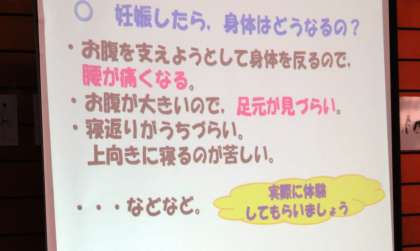 ○ 妊娠したら，身体はどうなるの？
・お腹を支えようとして身体を反るので，
腰が痛くなる。
・お腹が大きいので，足元が見づらい。
・寝返りがうちづらい。
上向きに寝るのが苦しい。
・・・などなど。
実際に体験
してもらいましょう